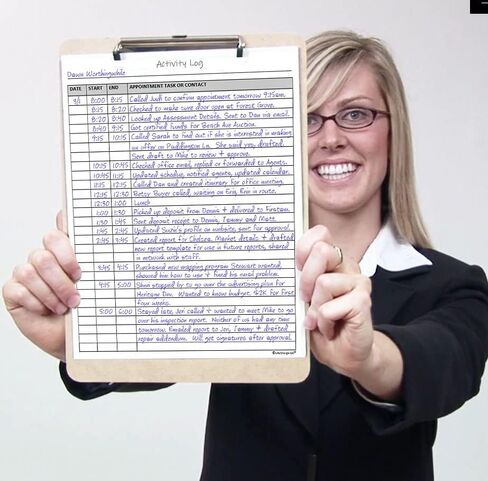 Activity Log
Dawn Worthingwhile
DATE START END APPOINTMENT TASK OR CONTACT
3/1 8:00 8:15 Called Judi to confirm appointment tomorrow 9:15am.
8:15 8:20 Checked to make sure door open at Forest Grove.
8:20 8:40 Looked up Assessment Details. Sent to Dan via email.
8:40 9:15 Got certified funds for Beach Ave Auction.
9:15 10:15 Called Sarah to find out if she is interested in making
an offer on Paddington Ln. She said yes, drafted.
Sent draft to Mike to review + approve.
10:15 10:45 Checked office email, replied or forwarded to Agents.
10:45 11:15 Updated schedule, notified agents, updated calendar.
11:15 12:15 Called Dan and created itinerary for office meeting.
12:15 12:30 Betsy Buyer called, waiting on Eric, Eric in route.
12:30 1:00 Lunch
1:00 1:30 Picked up deposit from Dennis + delivered to Firsteam.
1:30 1:45 Sent deposit receipt to Dennis, Tammy and Matt.
1:45 2:45 Updated Suzie's profile on website, sent for approval.
2:45 3:45 Created report for Chelsea. Market details + drafted
new report template for use in future reports, shared
in network with staff.
3:45 4:15 Purchased new mapping program Stewart wanted,
showed him how to use + fixed his email problem.
4:15 5:00 Sheri stopped by to go over the advertising plan for
Heritage Div. Wanted to know budget. $2K for First
Four weeks.
5:00 6:00 Stayed late, Jeri called + wanted to meet Mike to go
over his inspection report. Neither of us had any time
tomorrow. Emailed report to Jeri, Tammy + drafted
repair addendum. Will get signatures after approval.